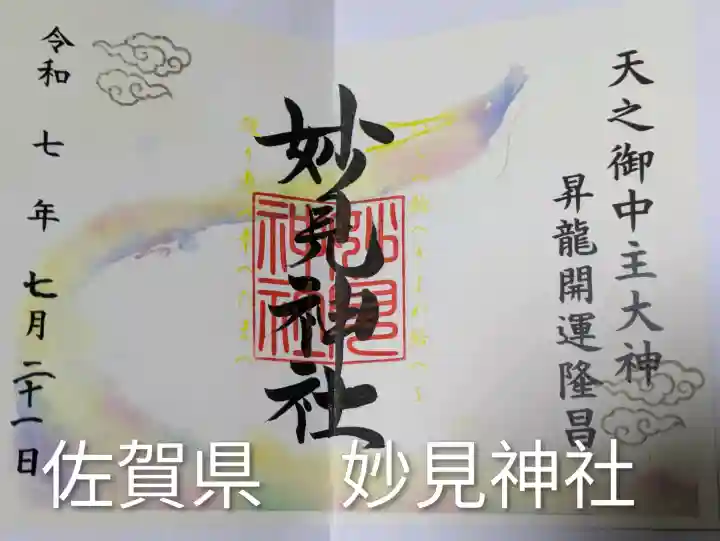 天之御中主大神
昇龍開運隆昌
妙見神社
妙見
神社
令和 七年 七月 二十一日
佐賀県 妙見神社